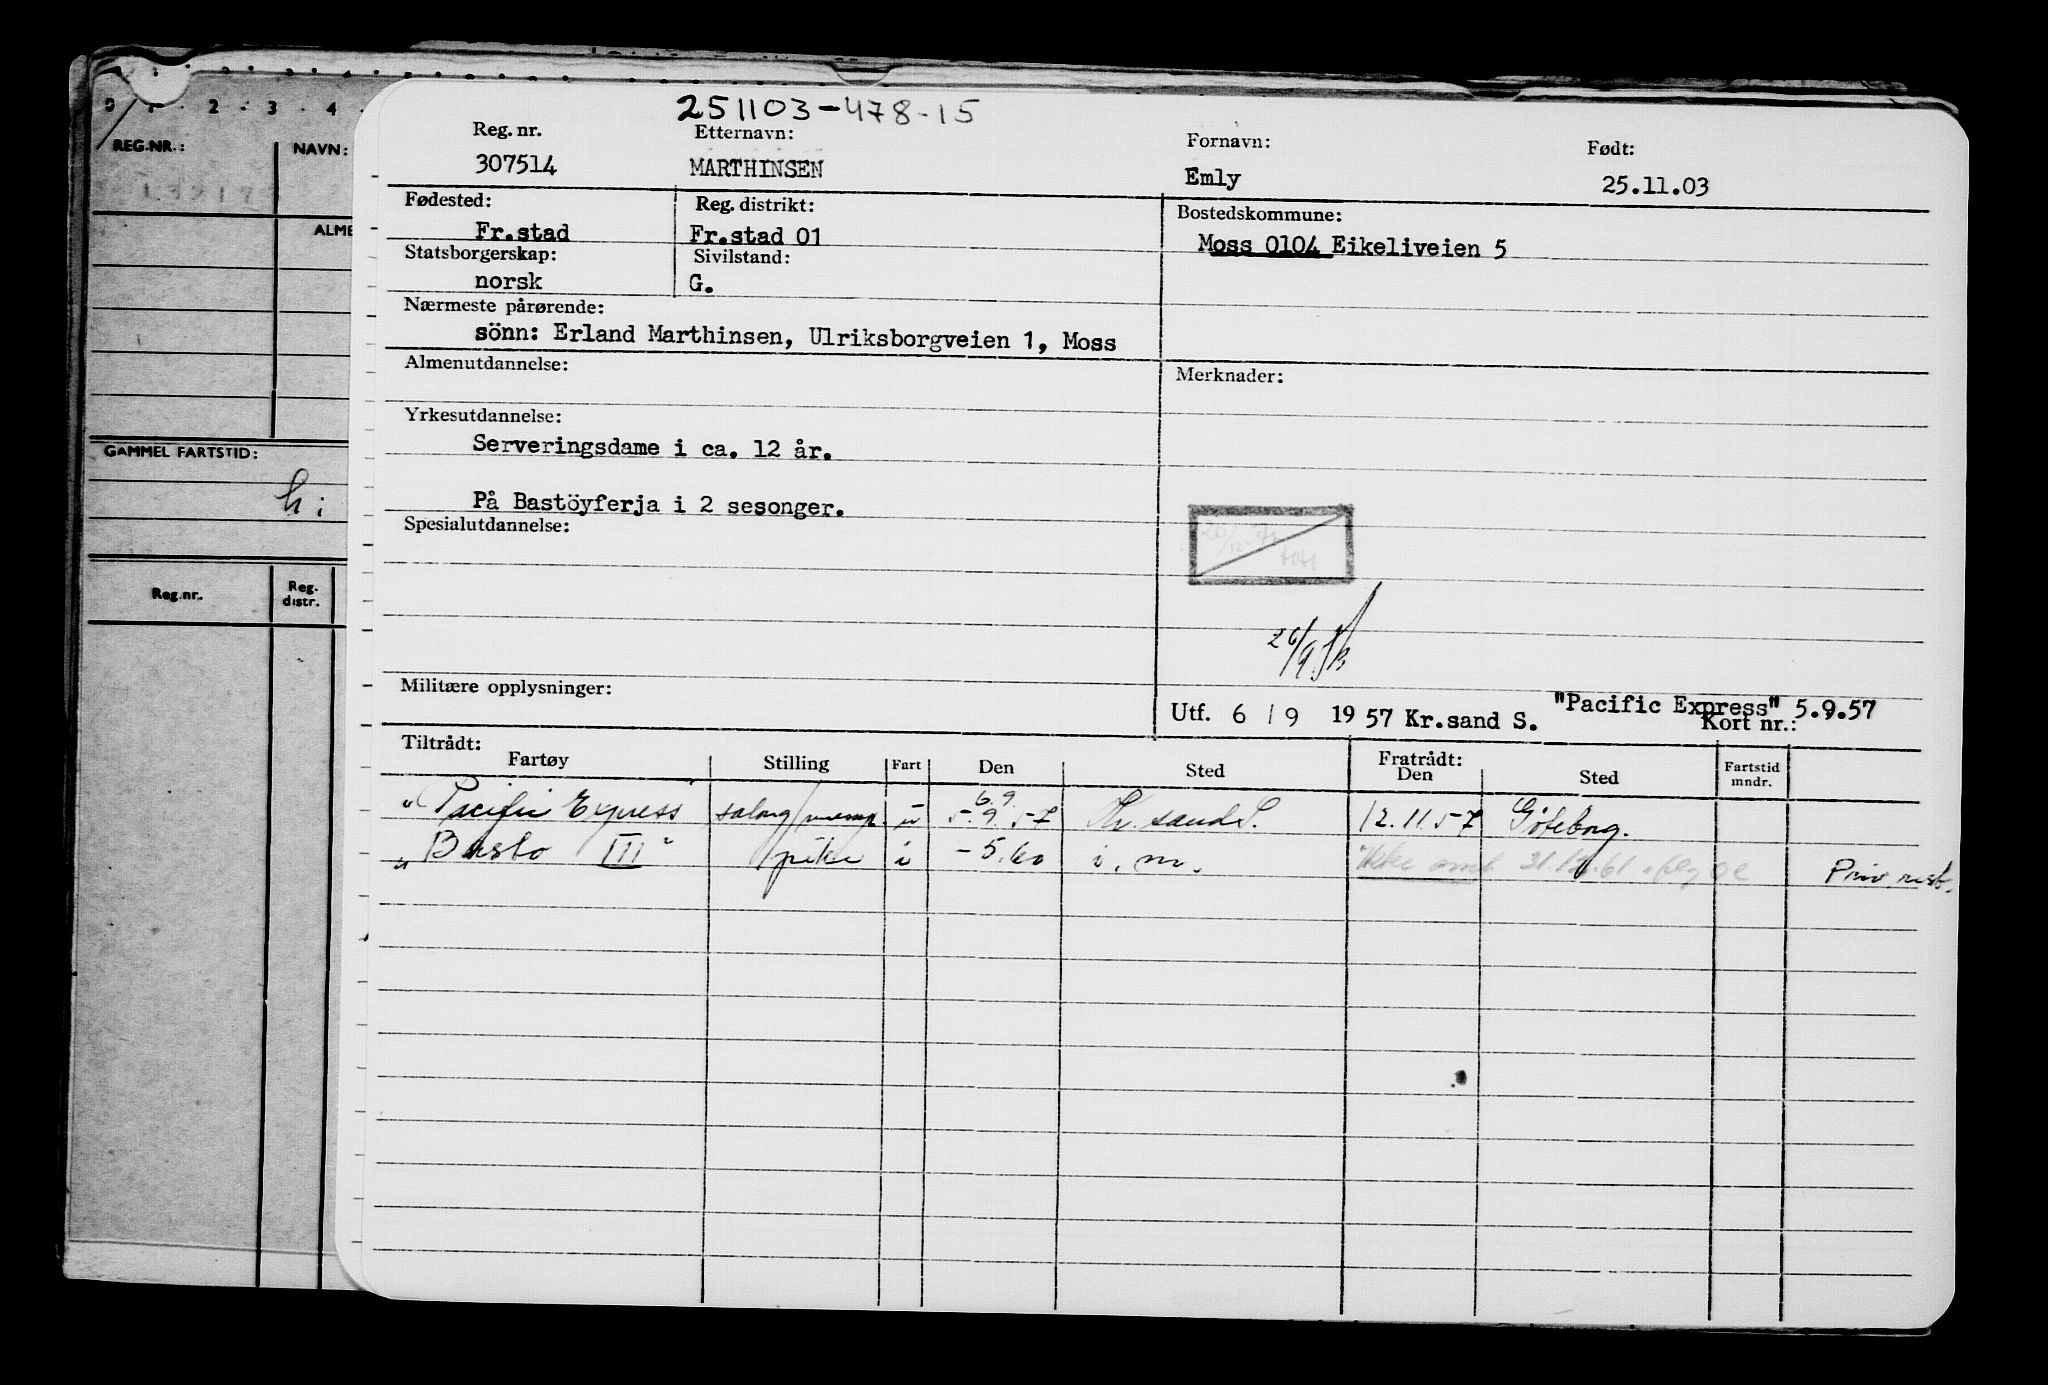 0 1 . 2 . 3 . 4 .
REG.NR.: NAVN:
ALME
GAMMEL FARTSTID:
h i
Reg.nr. Reg. distr.
251103-478-15
Reg. nr. Etternavn: Fornavn: Født:
307514 MARTHINSEN Emly 25.11.03
Fødested: Reg. distrikt: Bostedskommune:
Fr.stad Fr.stad 01 Moss 0104 Eikeliveien 5
Statsborgerskap: Sivilstand:
norsk G.
Nærmeste pårørende:
sönn: Erland Marthinsen, Ulriksborgveien 1, Moss
Almenutdannelse: Merknader:
Yrkesutdannelse:
Serveringsdame i ca. 12 år.
På Bastöyferja i 2 sesonger.
Spesialutdannelse:
26/9
Militære opplysninger:
"Pacific Express" 5.9.57
Utf. 6 / 9 1957 Kr.sand S. Kort nr.:
Tiltrådt: Fratrådt:
Fartøy Stilling Fart Den Sted Den Sted Fartstid mndr.
6.9.
"Pacific Express" salong u 5.9.57 Kr. sand S. 12.11.57 Göteborg.
"Bastø III" pike i -5.60 i. m. Ikke 31.12.61 Priv. rest.